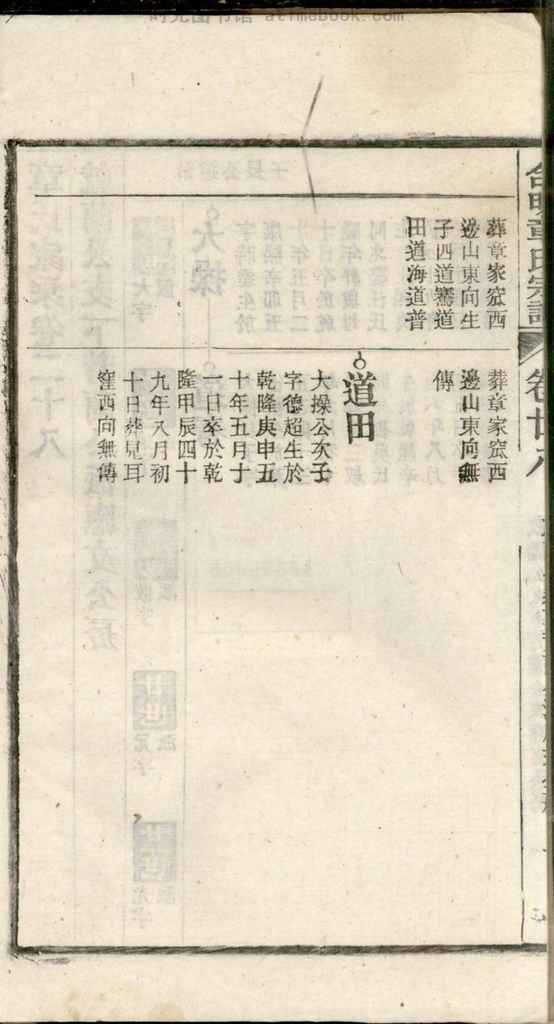 时光图书馆 atimebook.com
明章氏宗譜
卷廿八
葬章家窊西
邊山東向生
子四道騫道
田道海道普
葬章家窊西
邊山東向無
傳
道田
大操公次子
字德超生於
乾隆庚申五
十年五月十
一日卒於乾
隆甲辰四十
九年八月初
十日葬見耳
窪西向無傳